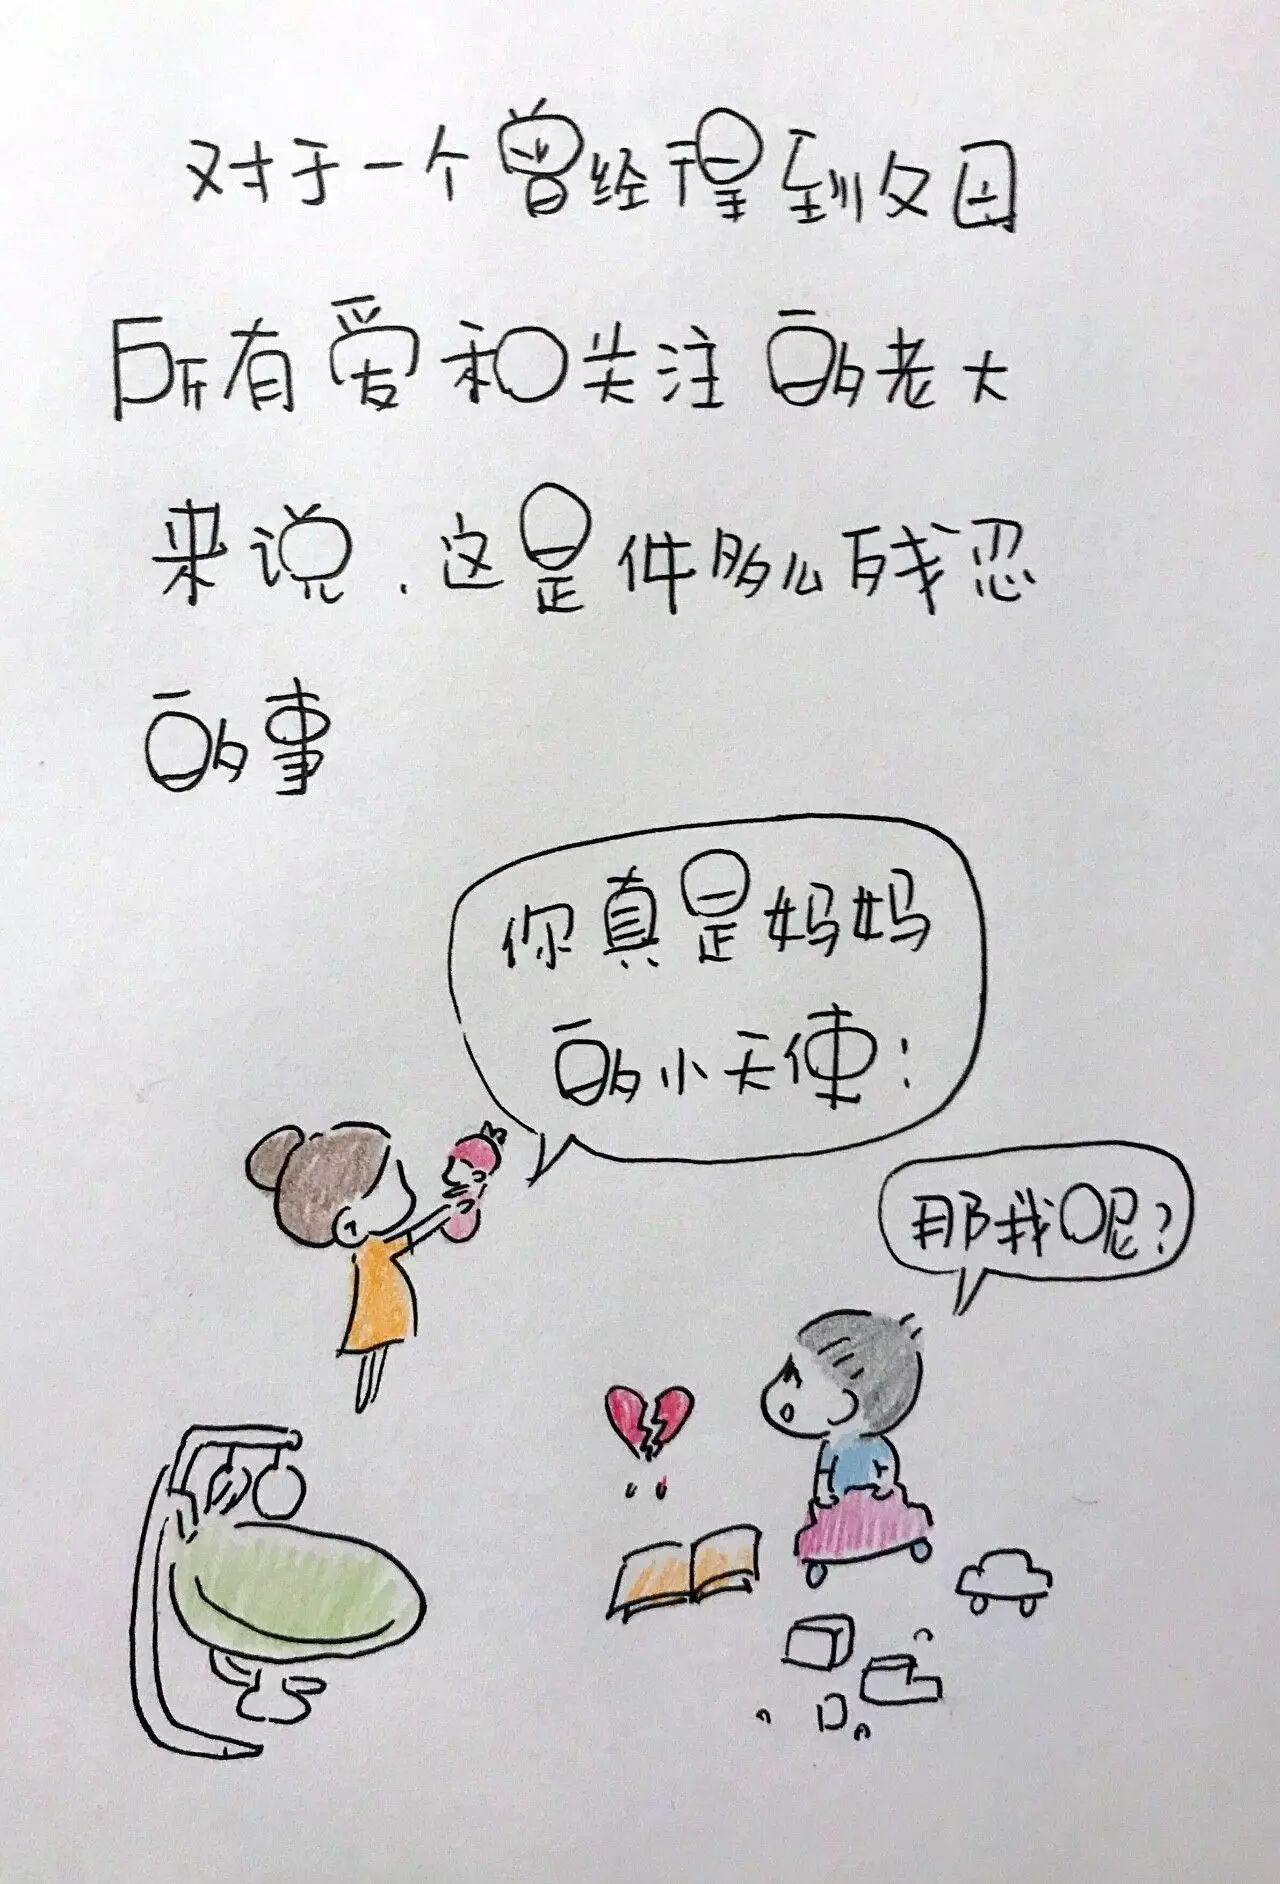 对于一个曾经得到父母
所有爱和关注的老大
来说.这是件多么残忍
的事
你真是妈妈
的小天使!
那我呢?